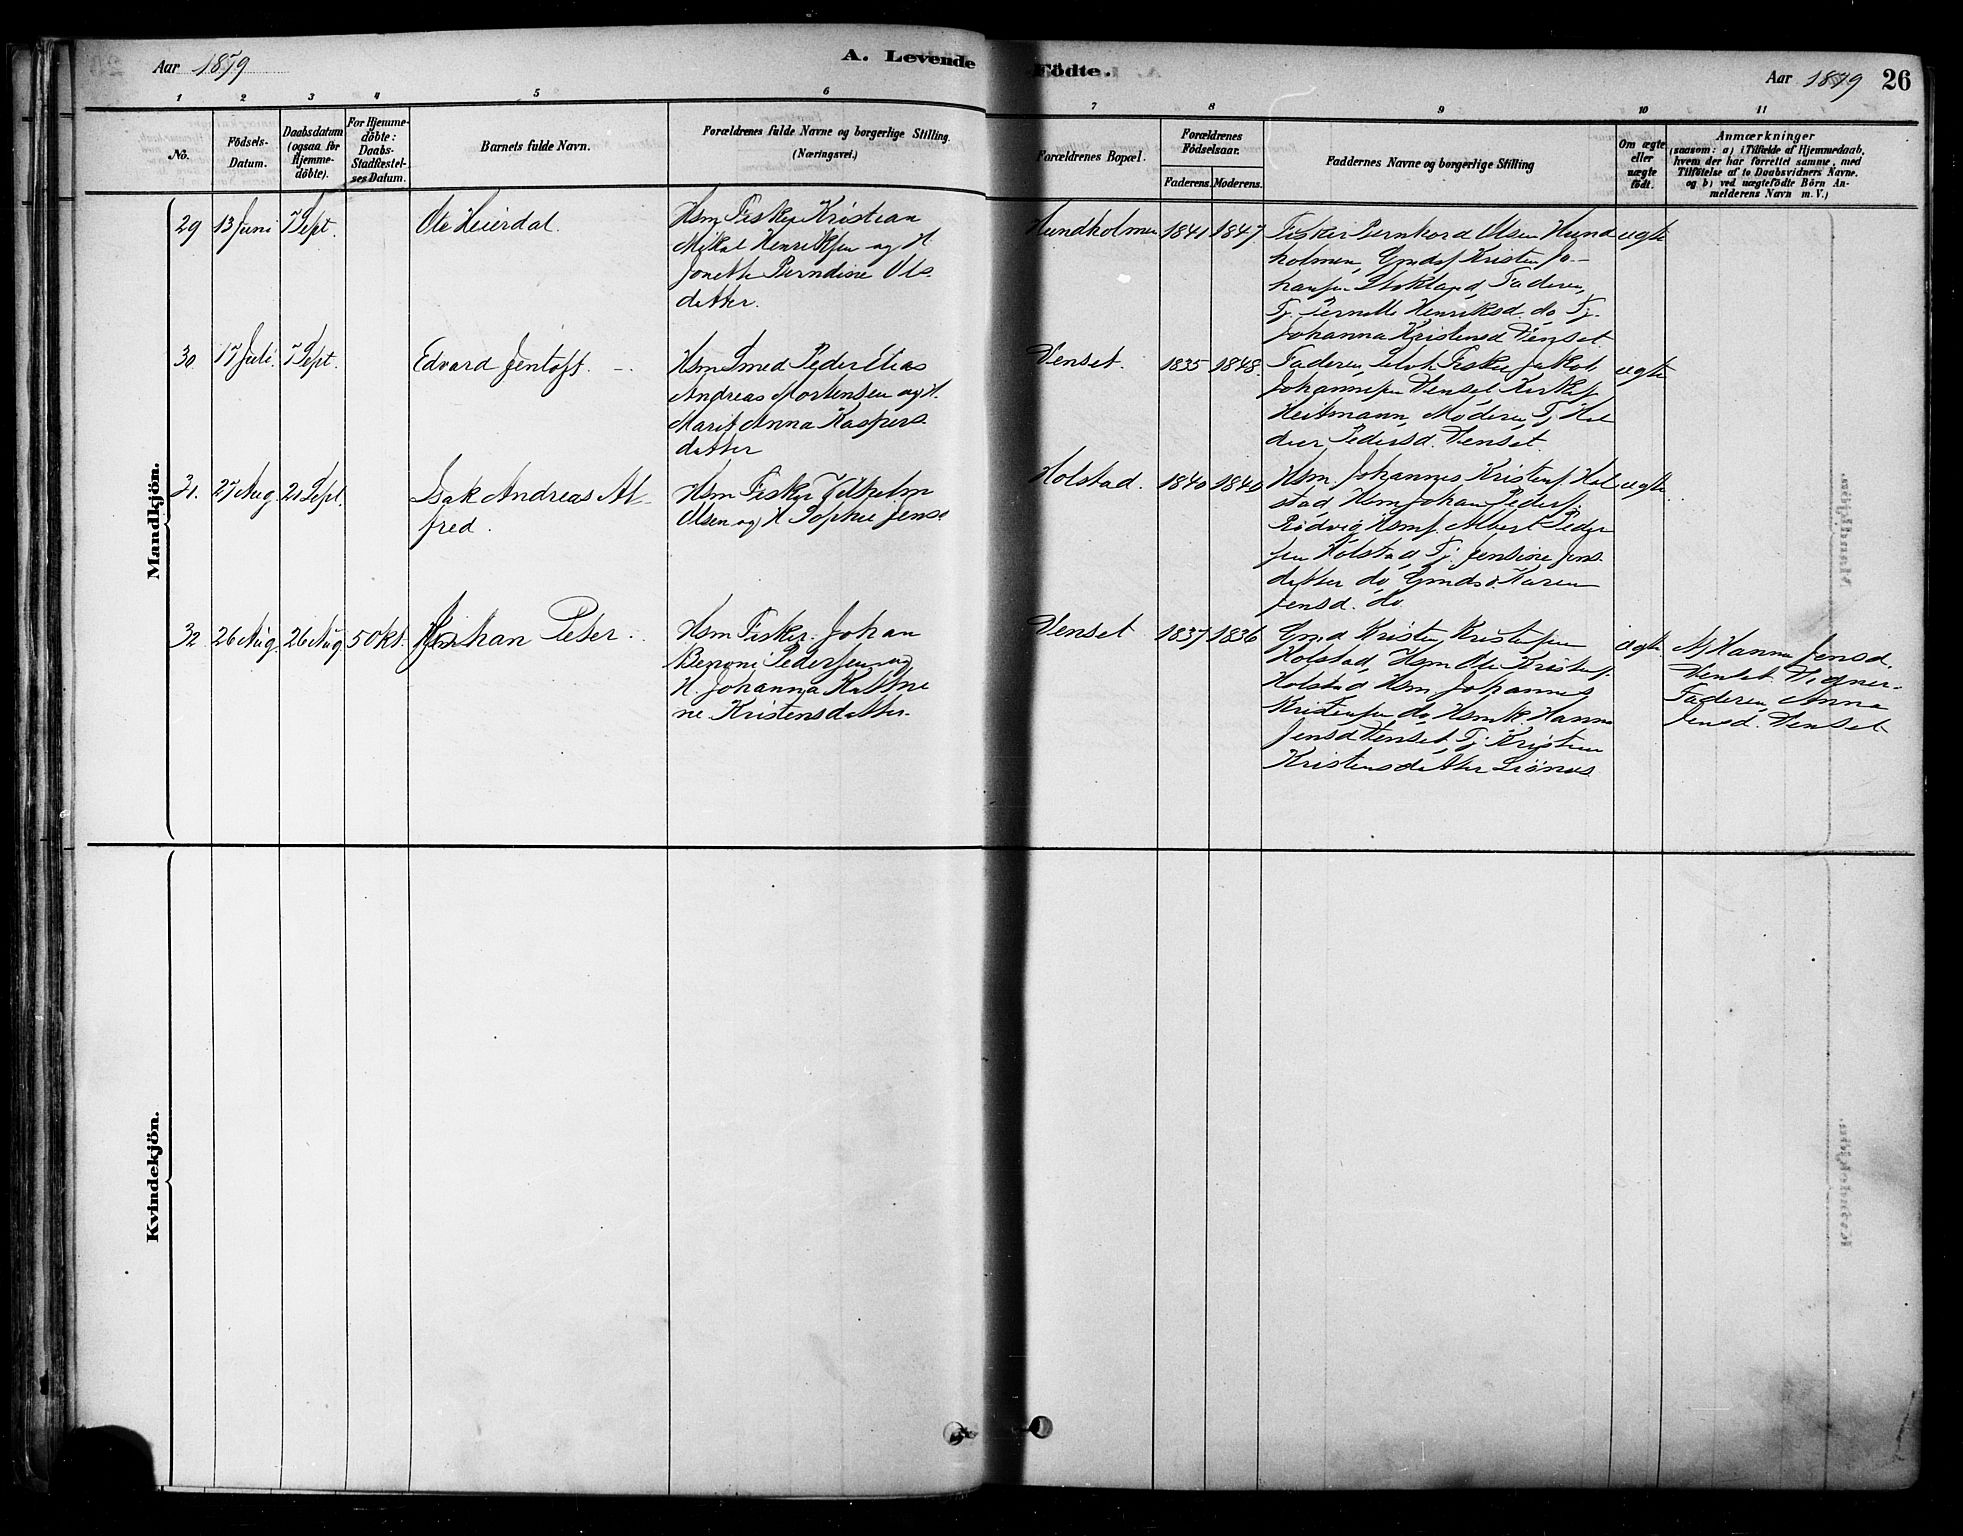 Aar 1879
A. Levende
Födte.
Aar 1879 26
1 2 3 4 5 6 7 8 9 10 11
No.
Födsels-
Datum.
Daabsdatum
(ogsaa for
Hjemme-
döbte).
For Hjemme-
döbte:
Daabs-
Stadfæstel-
ses Datum.
Barnets fulde Navn.
Forældrenes fulde Navne og borgerlige Stilling.
(Næringsvei.)
Forældrenes Bopæl.
Forældrenes
Födselsaar.
Faderens. Moderens.
Faddernes Navne og borgerlige Stilling
Om ægte
eller
uægte
födt.
Anmærkninger
(saasom: a) i Tilfælde af Hjemmedaab,
hvem der har forrettet samme, med
Tilföielse af to Daabsvidners Navne.
og b) ved uægtefödte Börn An-
melderens Navn m. V.)
Mandkjön.
29 13 Juni 7 Sept. Ole Heierdal.
Hsm Fisker Kristian
Mikal Henriksen og H
Joneth Berndine Ols
datter.
Hundholmen 1841 1847
Fisker Bernhard Olsen Hund
holmen, Gmdsf Kristen Jo-
hansen Stokland, Faderen,
Tj. Pernille Henriksd. do Tj.
Johanna Kristensd Venset.
ægte
30 17 Juli. 7 Sept. Edvard Jentoft. -.
Hsm Smed Peder Elias
Andreas Mortensen og H.
Marit Anna Kaspers
datter
Venset. 1835 1848.
Faderen, Fisker Jakob
Johannesen Venset
Heitmann, Moderen, Tj.
Pedersd. Venset.
ægte
31. 27 Aug. 21 Sept. Isak Andreas Al-
fred.
Hsm Fisker Vilhelm
Olsen og H Sophie Jensd
Holstad. 1840 1841
Hsm Johannes Kristens. Hol
stad, Hsm Johan Peders.
Rødvig Hsms. Albert Peder
sen Holstad, Tj. Jensine Jens
datter do, Gmds. Karen
Jensd. do
ægte
32 26 Aug. 26 Aug 5 Okt. Johan Peter.
Hsm Fisker Johan
Benoni Pedersen og
H. Johanna Kathri
ne Kristensdatter.
Venset 1837 1836
Gmd Kristen Kristensen
Holstad, Hsm Ole Kristens.
Holstad Hsm Johannes
Kristensen do, Hsmk. Hanna
Jensd Venset, Tj Kristine
Kristensdatter
ægte.
Af Hanna Jensd.
Venset. Vidner.
Faderen, Anna
Jensd. Venset
Kvindekjön.